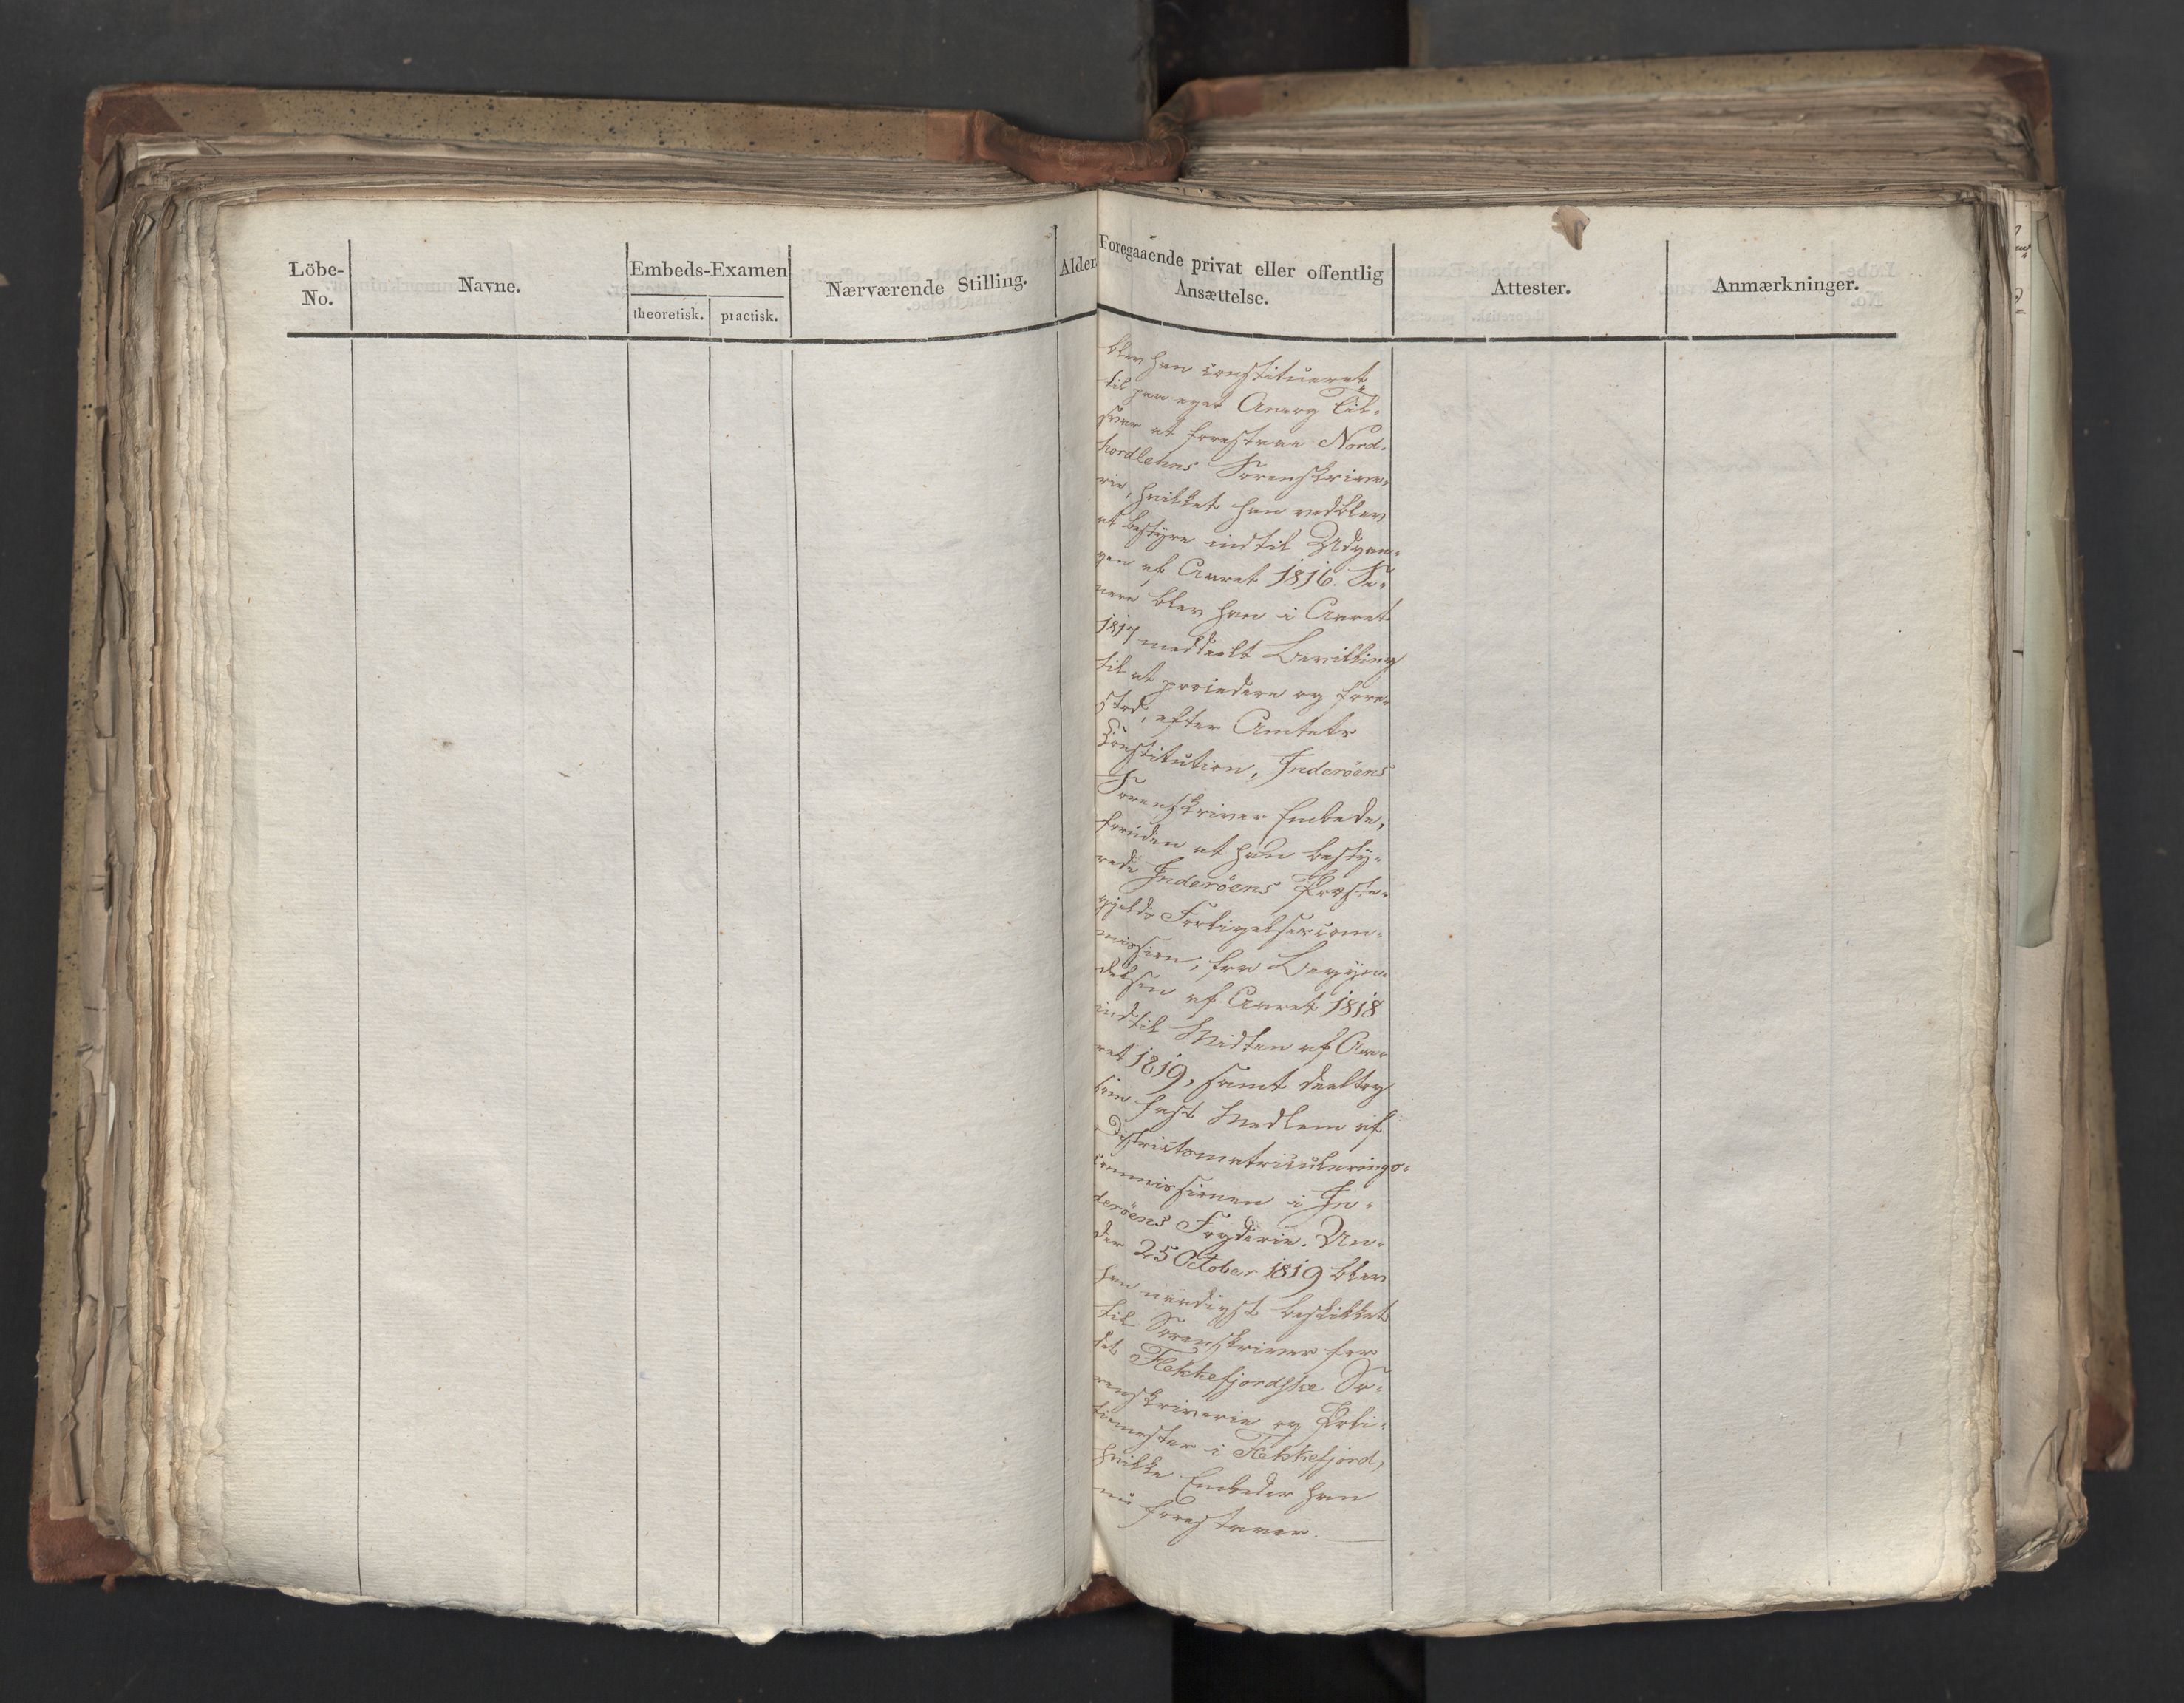 Löbe-
No.
Navne.
Embeds-Examen
theoretisk.
practisk.
Nærværende Stilling.
Alder.
Foregaaende privat eller offentlig
Ansættelse.
Attester.
Anmærkninger.
blev han constitueret
til paa eget Answar og Til-
svar at forestaae Nord-
hordlehns Sorenskrive-
rie, hvilket han vedblev
at bestyre indtil Udgan-
gen af Aaret 1816. Se-
nere blev han i Aaret
1817 meddeelt Bevilling
til at procedere og fore-
stod, efter Amtets
Constitution, Inderöens
Sorenskriver Embede,
foruden at han besty-
rede Inderöens Præste-
gjelds Forligelsescom-
mission, fra Begyn-
delsen af Aaret 1818
indtil Midten af Aa-
ret 1819, samt deeltog
som fast Medlem af
Districtsmatriculerings-
commissionen i In-
deröens Fogderie. Un-
der 25 October 1819 blev
han naadigst beskikket
til Sorenskriver for
det Flekkefjordske So-
renskriverie og Poli-
timester i Flekkefjord,
hvilke Embeder han
nu forestaaer.